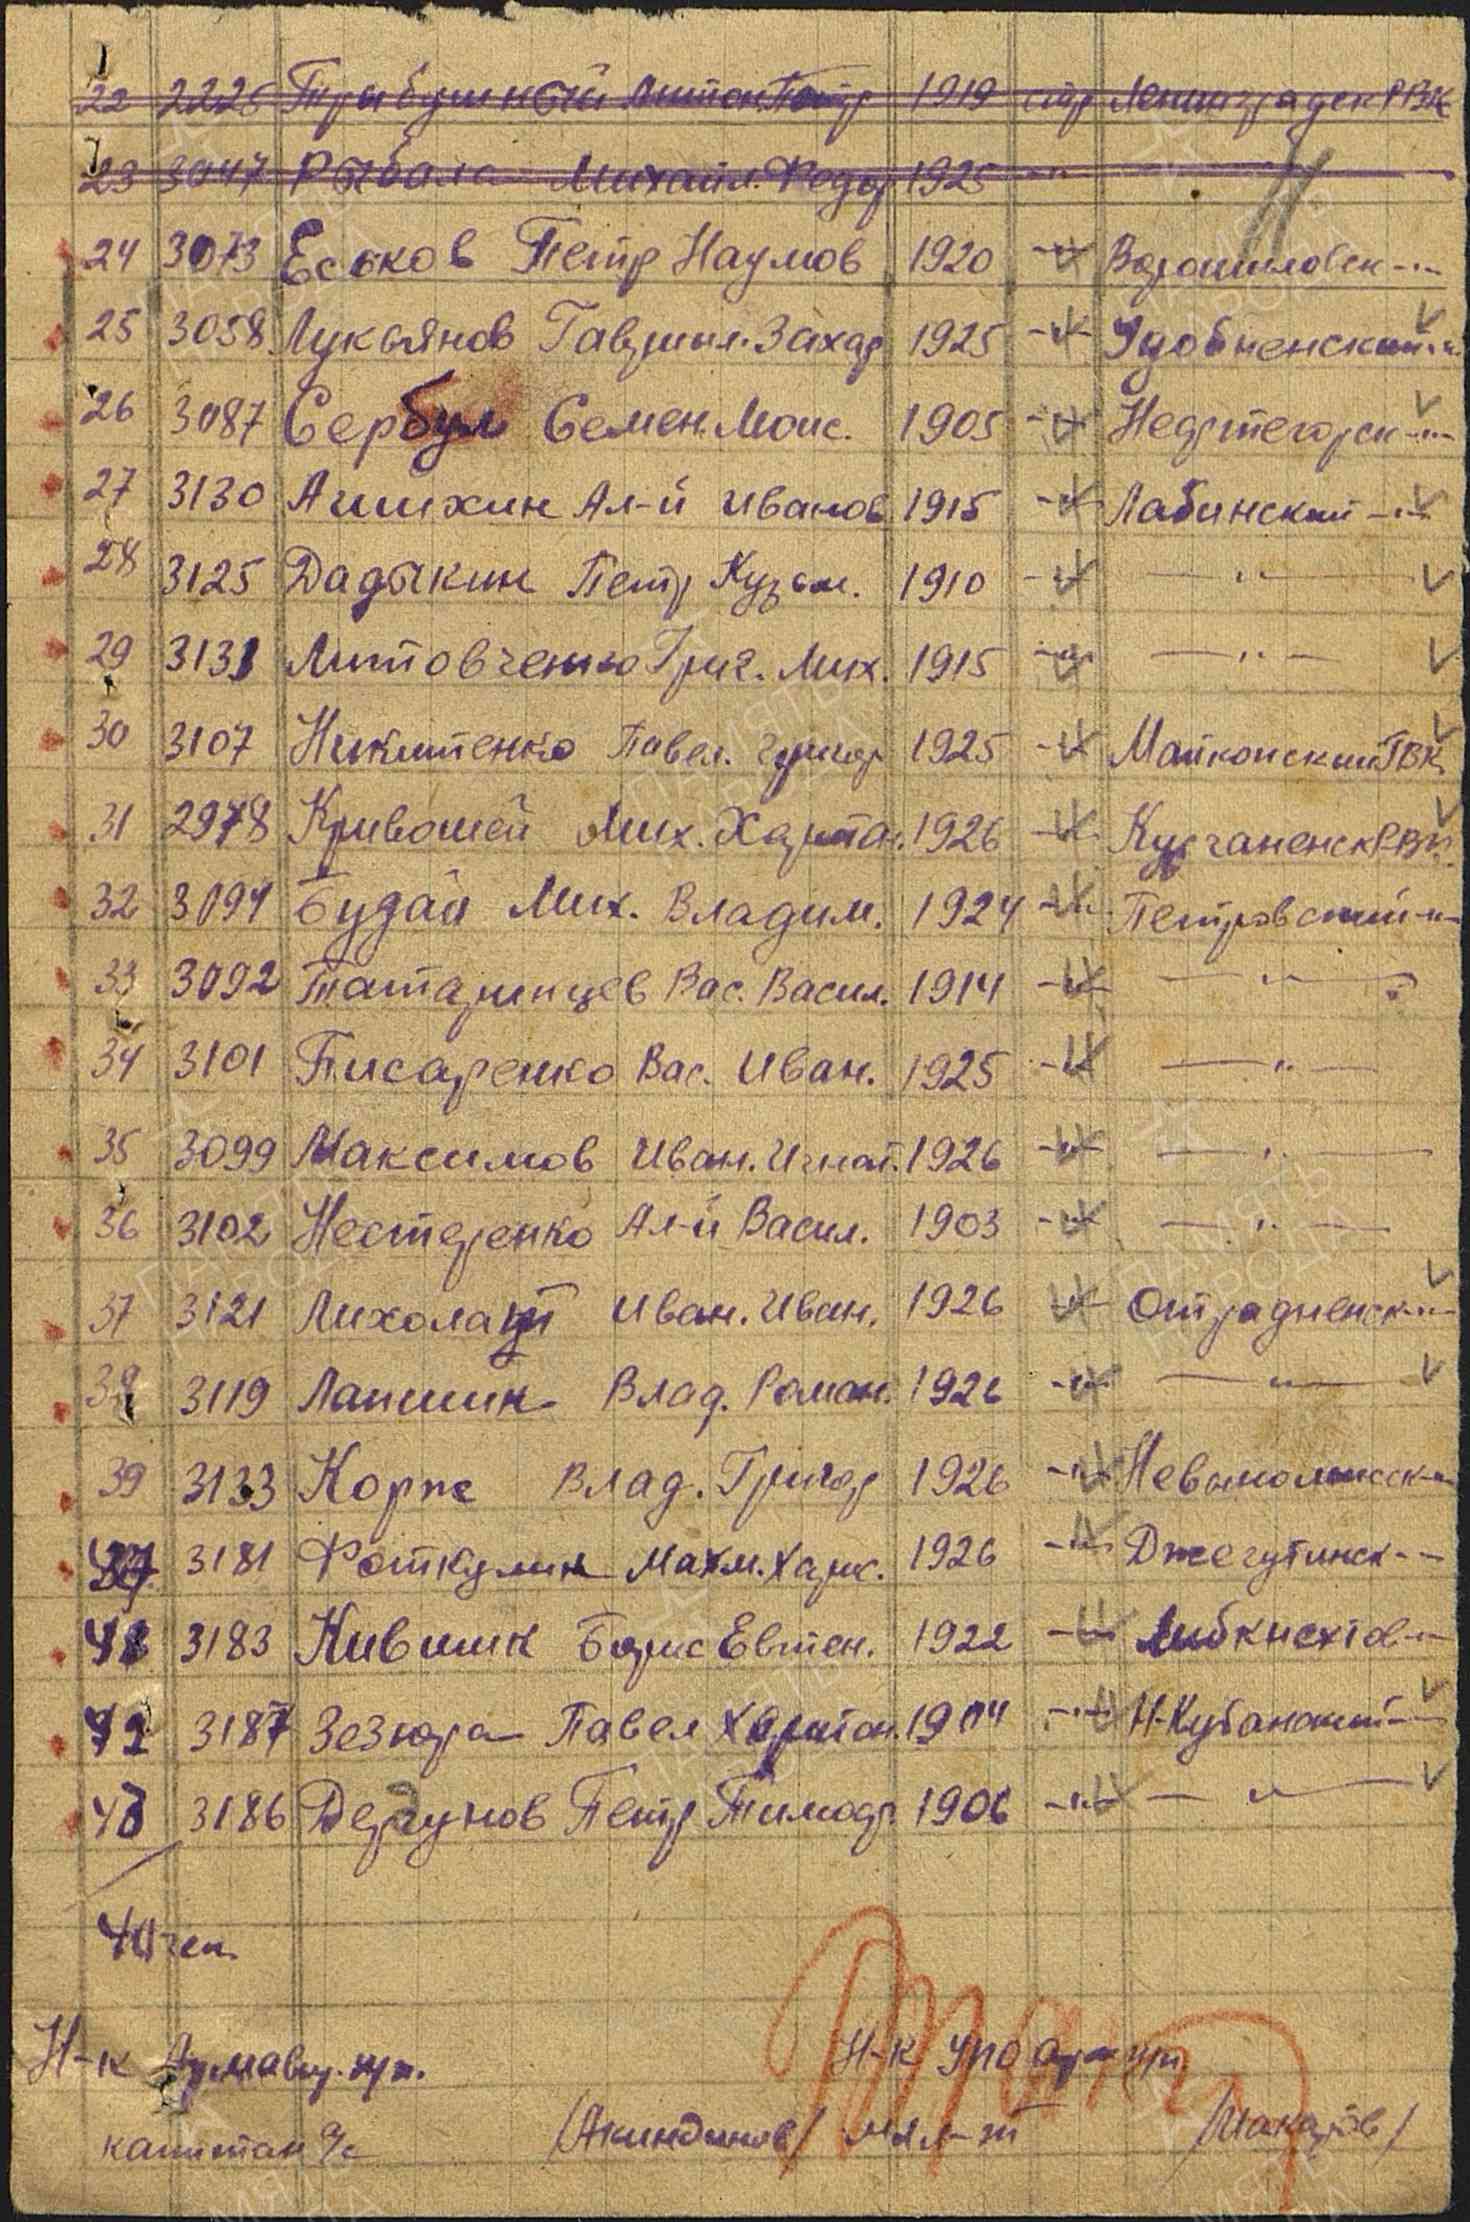 22 222 Трибушной Антон Петр 1919 стр Ленинградск РВК
23 3047 Рыбала Михаил. Федор 1925 -"- -"-
24 3073 Еськов Петр Наумов 1920 -"- Ворошиловск -"-
25 3058 Лукьянов Гаврил. Захар 1925 -"- Удобненский -"-
26 3087 Сербул Семен. Моис. 1905 -"- Нефтегорск -"-
27 3130 Ашихин Ал-й Иванов 1915 -"- Лабинский -"-
28 3125 Дадыкин Петр Кузьм. 1910 -"- -"-
29 3131 Литовченко Григ. Мих. 1915 -"- -"-
30 3107 Никитенко Павел. Григор 1925 -"- Майкопский ГВК
31 2978 Кривошей Мих. Харитон. 1926 -"- РВК
32 3094 Будай Мих. Владим. 1924 -"- Петровский -"-
33 3092 Татаринцев Вас. Васил. 1914 -"- -"-
34 3101 Писаренко Вас. Иван. 1925 -"- -"-
35 3099 Максимов Иван. Игнат. 1926 -"- -"-
36 3102 Нестеренко Ал-й Васил. 1903 -"- -"-
37 3121 Лихолат Иван. Иван. 1926 -"- Отрадненск -"-
38 3119 Лапшин Влад. Роман. 1926 -"- -"-
39 3133 Корж Влад. Григор 1926 -"- Невыномысск -"-
3181 Фоткулин Махм. Харис. 1926 -"- Джегутинск -"-
41 3183 Кившик Борис Евген. 1922 -"- Либкнехтов -"-
42 3187 Зезюра Павел Харитон. 1904 -"- Н-Кубанский -"-
43 3186 Дергунов Петр Тимоф. 1906 -"- -"-
40 чел.
Н-к Армавир. пп. Н-к УРО
капитан а/с /Акиндинов/ мл л-т /Макаров/